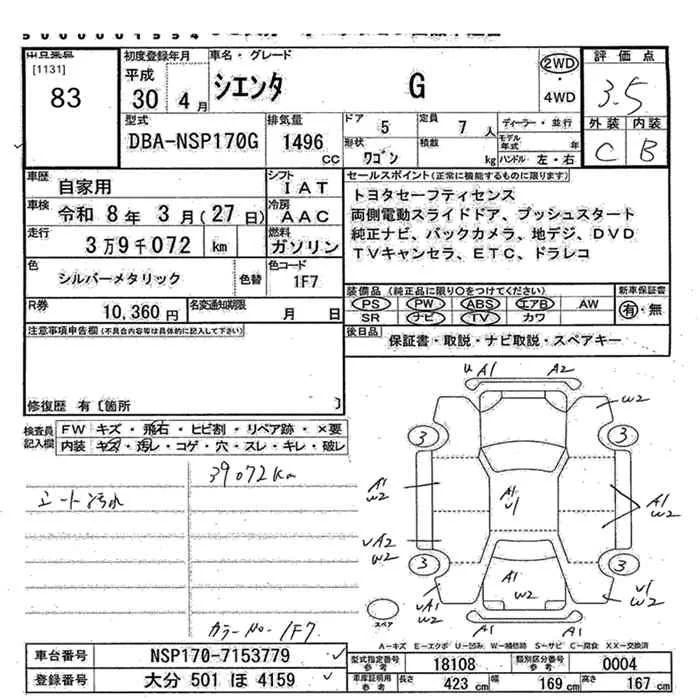 出品番号 [1131] 83
初度登録年月 平成 30 年 4 月
車名・グレード シエンタ G
2WD ・ 4WD
評価点 3.5
外装 内装
C B
型式 DBA-NSP170G
排気量 1496 CC
ドア 5
定員 7 人
ディーラー・並行
形状 ワゴン
積載 kg
モデル年式 年
ハンドル 左・右
車歴 自家用
シフト IAT
車検 令和 8年 3月(27日)
冷房 AAC
走行 3万9千072 km
燃料 ガソリン
色 シルバーメタリック 色替
色コード 1F7
R券 10,360円
名変通知期限 月 日
セールスポイント(正常に機能するものに限ります)
トヨタセーフティセンス
両側電動スライドドア、プッシュスタート
純正ナビ、バックカメラ、地デジ、DVD
TVキャンセラ、ETC、ドラレコ
装備品(純正品に限り○をつけてください) 新車保証書
PS PW ABS エアB AW 有・無
SR ナビ TV カワ
後日品 保証書・取説・ナビ取説・スペアキー
注意事項申告欄(不具合内容等は具体的に記入して下さい)
修復歴 有〔箇所 〕
検査員記入欄
FW キズ・飛石・ヒビ割・リペア跡・×要
内装 キズ・汚レ・コゲ・穴・スレ・キレ・破レ
39072km
シート汚れ
カラーNo. 1F7
U A1 A2
W2
3 3
A1 W2
A1 U1
A1 W2
UA2 W2
3 3
A1 W2
UA1 W2
U1 W2
A1 A1
スペア
A-キズ E-エクボ U-凹み W-補修跡 S-サビ C-腐食 XX-交換済
車台番号 NSP170-7153779
登録番号 大分 501 ほ 4159
型式指定番号 参考 18108
類別区分番号 参考 0004
車庫証明用 参考 長さ 423 cm 幅 169 cm 高さ 167 cm